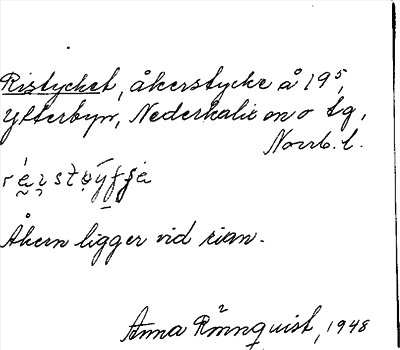 Ristycket, åkerstycke å 19⁵,
Ytterbyn, Nederkalix sn o tg,
Norrb. l.
Åkern ligger vid rian.
Anna Rönnquist, 1948